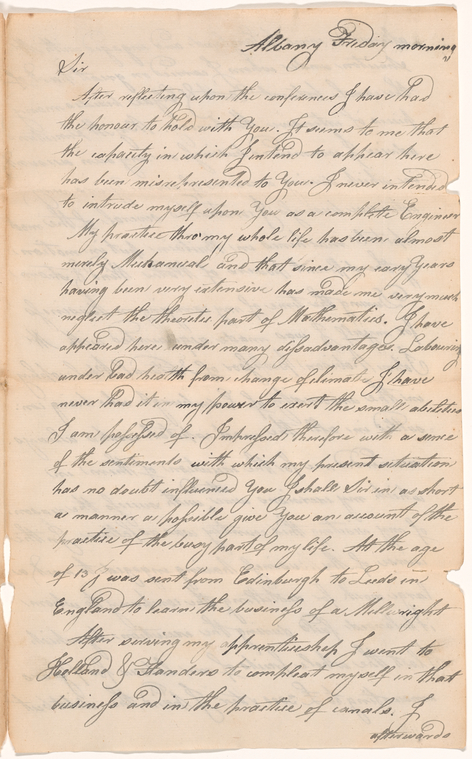 Albany Friday morning
Sir
After reflecting upon the conferences I have had
the honour to hold with You. It seems to me that
the capacity in which I intend to appear here
has been misrepresented to You. I never intended
to intrude myself upon You as a complete Engineer
My practice thro my whole life has been almost
merely Mechanical and that since my early Years
having been very extensive has made me very much
neglect the theoretic part of Mathematics. I have
appeared here under many dissadvantages. Labouring
under bad health from change of climate I have
never had it in my power to exert the small abilities
I am possessed of. Impressed therefore with a sence
of the sentiments with which my present situation
has no doubt influenced You I shall Sir in as short
a manner as possible give You an account of the
practice of the busy part of my life. At the age
of 13 I was sent from Edinburgh to Leeds in
England to learn the business of a Mill wright
After serving my apprenticeship I went to
Holland & Flanders to compleat myself in that
business and in the practice of canals. I
afterwards